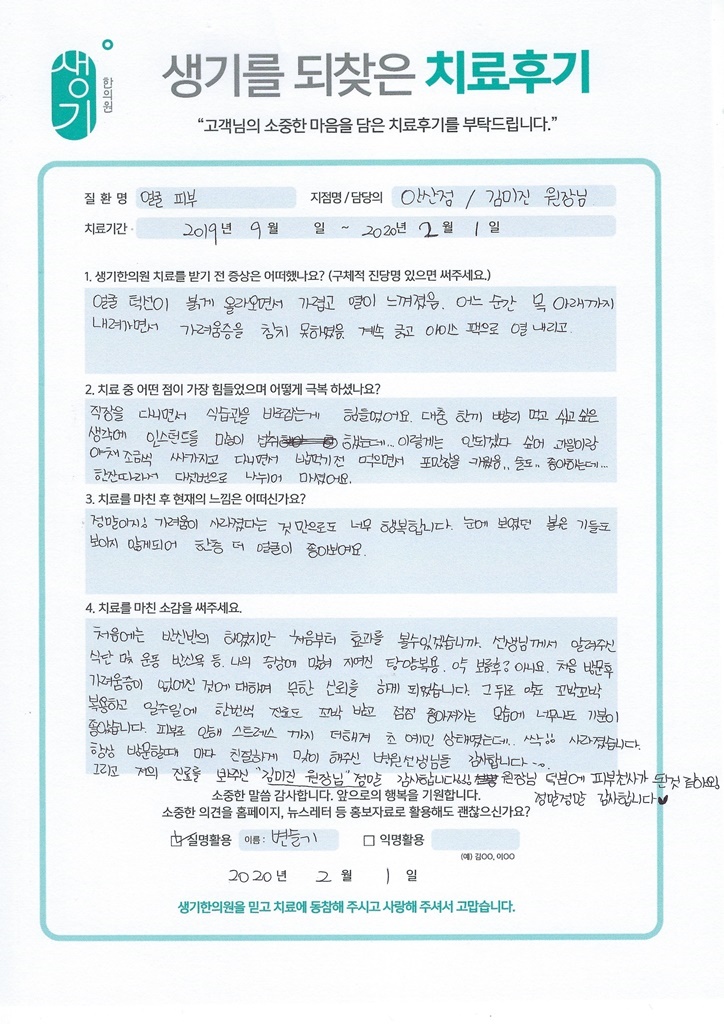 생기 한의원
생기를 되찾은 치료후기
“고객님의 소중한 마음을 담은 치료후기를 부탁드립니다.”
질 환 명 얼굴 피부 지점명 / 담당의 안산점 / 김미진 원장님
치료기간 2019년 9월 일 ~ 2020년 2월 1일
1. 생기한의원 치료를 받기 전 증상은 어떠했나요? (구체적 진단명 있으면 써주세요.)
얼굴 턱선이 붉게 올라오면서 가렵고 열이 느껴졌음. 어느 순간 목 아래까지
내려가면서 가려움증을 참지 못하였음 계속 긁고 아이스 팩으로 열 내리고.
2. 치료 중 어떤 점이 가장 힘들었으며 어떻게 극복 하셨나요?
직장을 다니면서 식습관을 바로잡는게 힘들었어요. 대충 한끼 빨리 먹고 쉬고 싶은
생각에 인스턴트를 많이 했는데... 이렇게는 안되겠다 싶어 과일이랑
야채 조금씩 싸가지고 다니면서 밥먹기전 먹으면서 포만감을 키웠음.. 술도.. 좋아하는데...
한잔따라서 다섯번으로 나누어 마셨어요.
3. 치료를 마친 후 현재의 느낌은 어떠신가요?
정말이지! 가려움이 사라졌다는 것 만으로도 너무 행복합니다. 눈에 보였던 붉은 기들도
보이지 않게되어 한층 더 얼굴이 좋아보여요.
4. 치료를 마친 소감을 써주세요.
처음에는 반신반의 하였지만 처음부터 효과를 볼수있겠습니까. 선생님께서 알려주신
식단 및 운동 반신욕 등. 나의 증상에 맞춰 지어진 탕약복용. 약 보름후? 아니요. 처음 방문후
가려움증이 없어진 것에 대하여 무한 신뢰를 하게 되었습니다. 그 뒤로 약도 꼬박꼬박
복용하고 일주일에 한번씩 진료도 꼬박 받고 점점 좋아져가는 모습에 너무나도 기분이
좋았습니다. 피부로 인해 스트레스 까지 더해져 초 예민 상태였는데.. 싹싹!! 사라졌습니다.
항상 방문할때 마다 친절하게 맞이 해주신 병원선생님들 감사합니다~.
그리고 저의 진료를 봐주신 "김미진 원장님" 정말 감사합니다!! 원장님 덕분에 피부천사가 된것 같아요.
정말정말 감사합니다♥
소중한 말씀 감사합니다. 앞으로의 행복을 기원합니다.
소중한 의견을 홈페이지, 뉴스레터 등 홍보자료로 활용해도 괜찮으신가요?
☑ 실명활용 이름 : 변들기 □ 익명활용
(예) 김OO, 이OO
2020년 2월 1일
생기한의원을 믿고 치료에 동참해 주시고 사랑해 주셔서 고맙습니다.